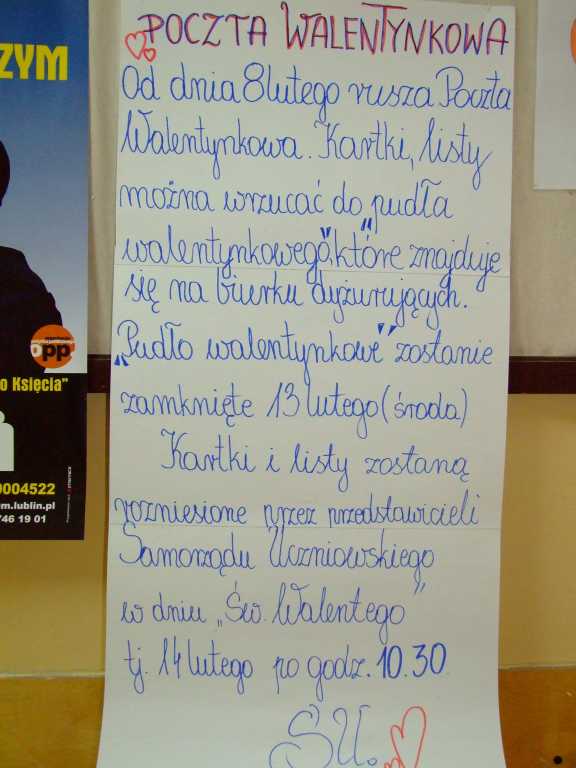 POCZTA WALENTYNKOWA
Od dnia 8 lutego rusza Poczta
Walentynkowa. Kartki, listy
można wrzucać do „pudła
walentynkowego", które znajduje
się na biurku dyżurujących.
„Pudło walentynkowe" zostanie
zamknięte 13 lutego (środa)
Kartki i listy zostaną
rozniesione przez przedstawicieli
Samorządu Uczniowskiego
w dniu „Św. Walentego"
tj. 14 lutego po godz. 10.30
SU.
ZYM
opp
o Księcia"
0004522
m.lublin.pl
746 19 01